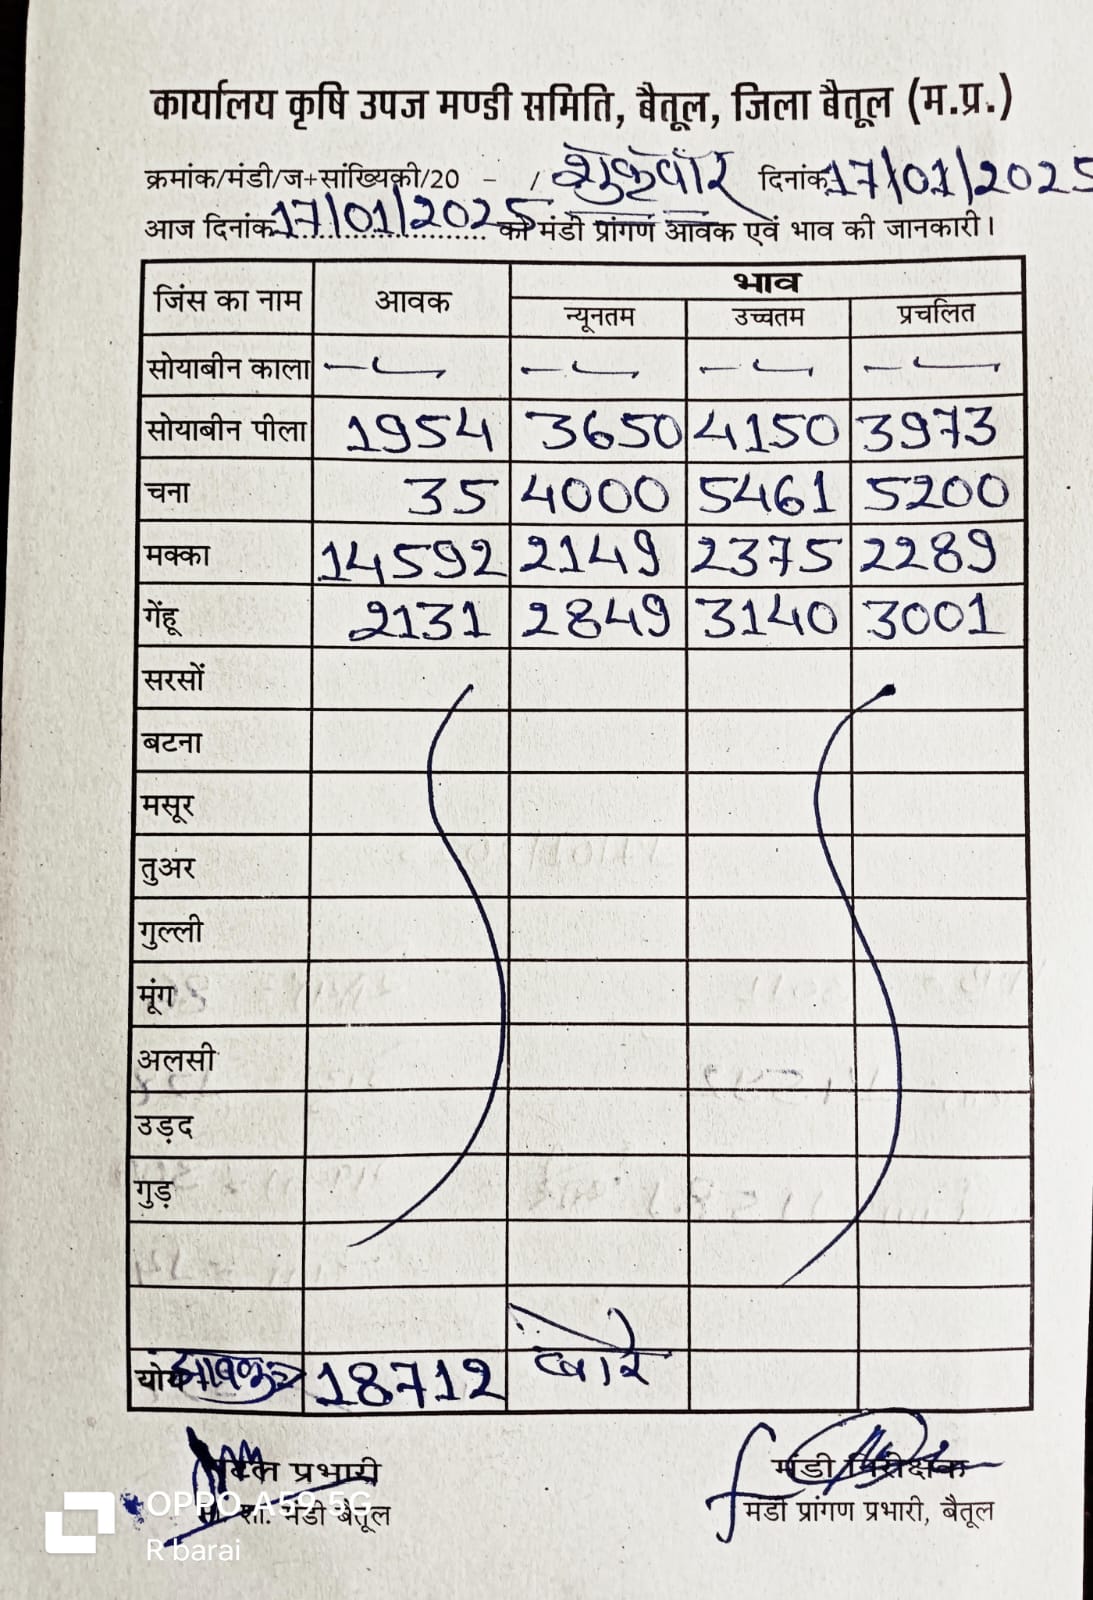 कार्यालय कृषि उपज मण्डी समिति, बैतूल, जिला बैतूल (म.प्र.)
क्रमांक/मंडी/ज+सांख्यिकी/20 - / शुक्रवार दिनांक 17/01/2025
आज दिनांक 17/01/2025 को मंडी प्रांगण आवक एवं भाव की जानकारी।
जिंस का नाम आवक भाव
न्यूनतम उच्चतम प्रचलित
सोयाबीन काला
सोयाबीन पीला 1954 3650 4150 3973
चना 35 4000 5461 5200
मक्का 14592 2149 2375 2289
गेंहू 2131 2849 3140 3001
सरसों
बटना
मसूर
तुअर
गुल्ली
मूंग
अलसी
उड़द
गुड़
योग आवक 18712 बोरे
प्रभारी मंडी निरीक्षक
शा. मंडी बैतूल मंडी प्रांगण प्रभारी, बैतूल
OPPO A59 5G
R barai